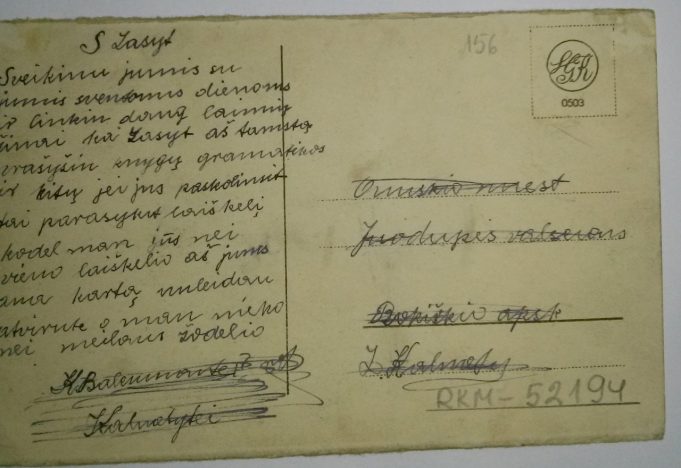 S Zasyt
Sveikinu jumis su
jumis sventomis dienoms
ir linkin daug laimių
žinai ką Zasyt aš tamsta
prašyšiu knygų gramatikos
ir kitų jei jus paskolinsit
tai parasykit laiškelį
kodel man jūs nei
vieno laiškelio aš jums
ama kartą nuleidau
atvirutę o man nieko
nei meilaus žodelio
156
HGR
0503
Onuskio miest
Juodupės valsciaus
Rokiškio apsk
RKM-52194